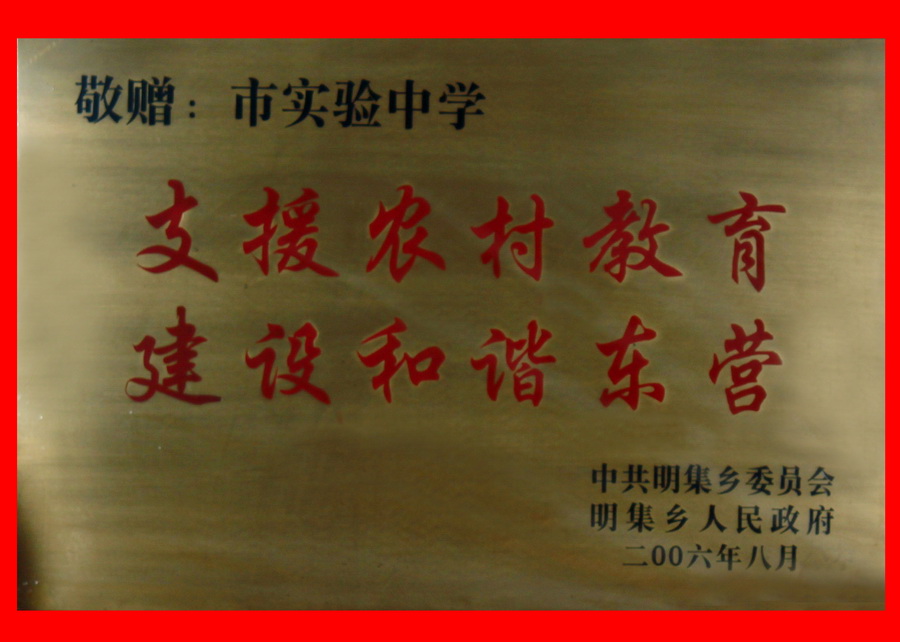 敬赠：市实验中学
支援农村教育
建设和谐东营
中共明集乡委员会
明集乡人民政府
二00六年八月